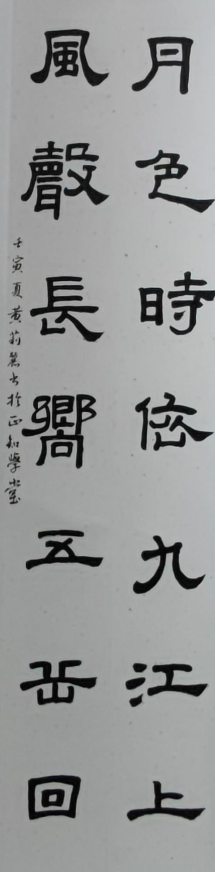 月色時依九江上
風聲長嚮五岳回
壬寅夏黄莉麗書於正知學堂